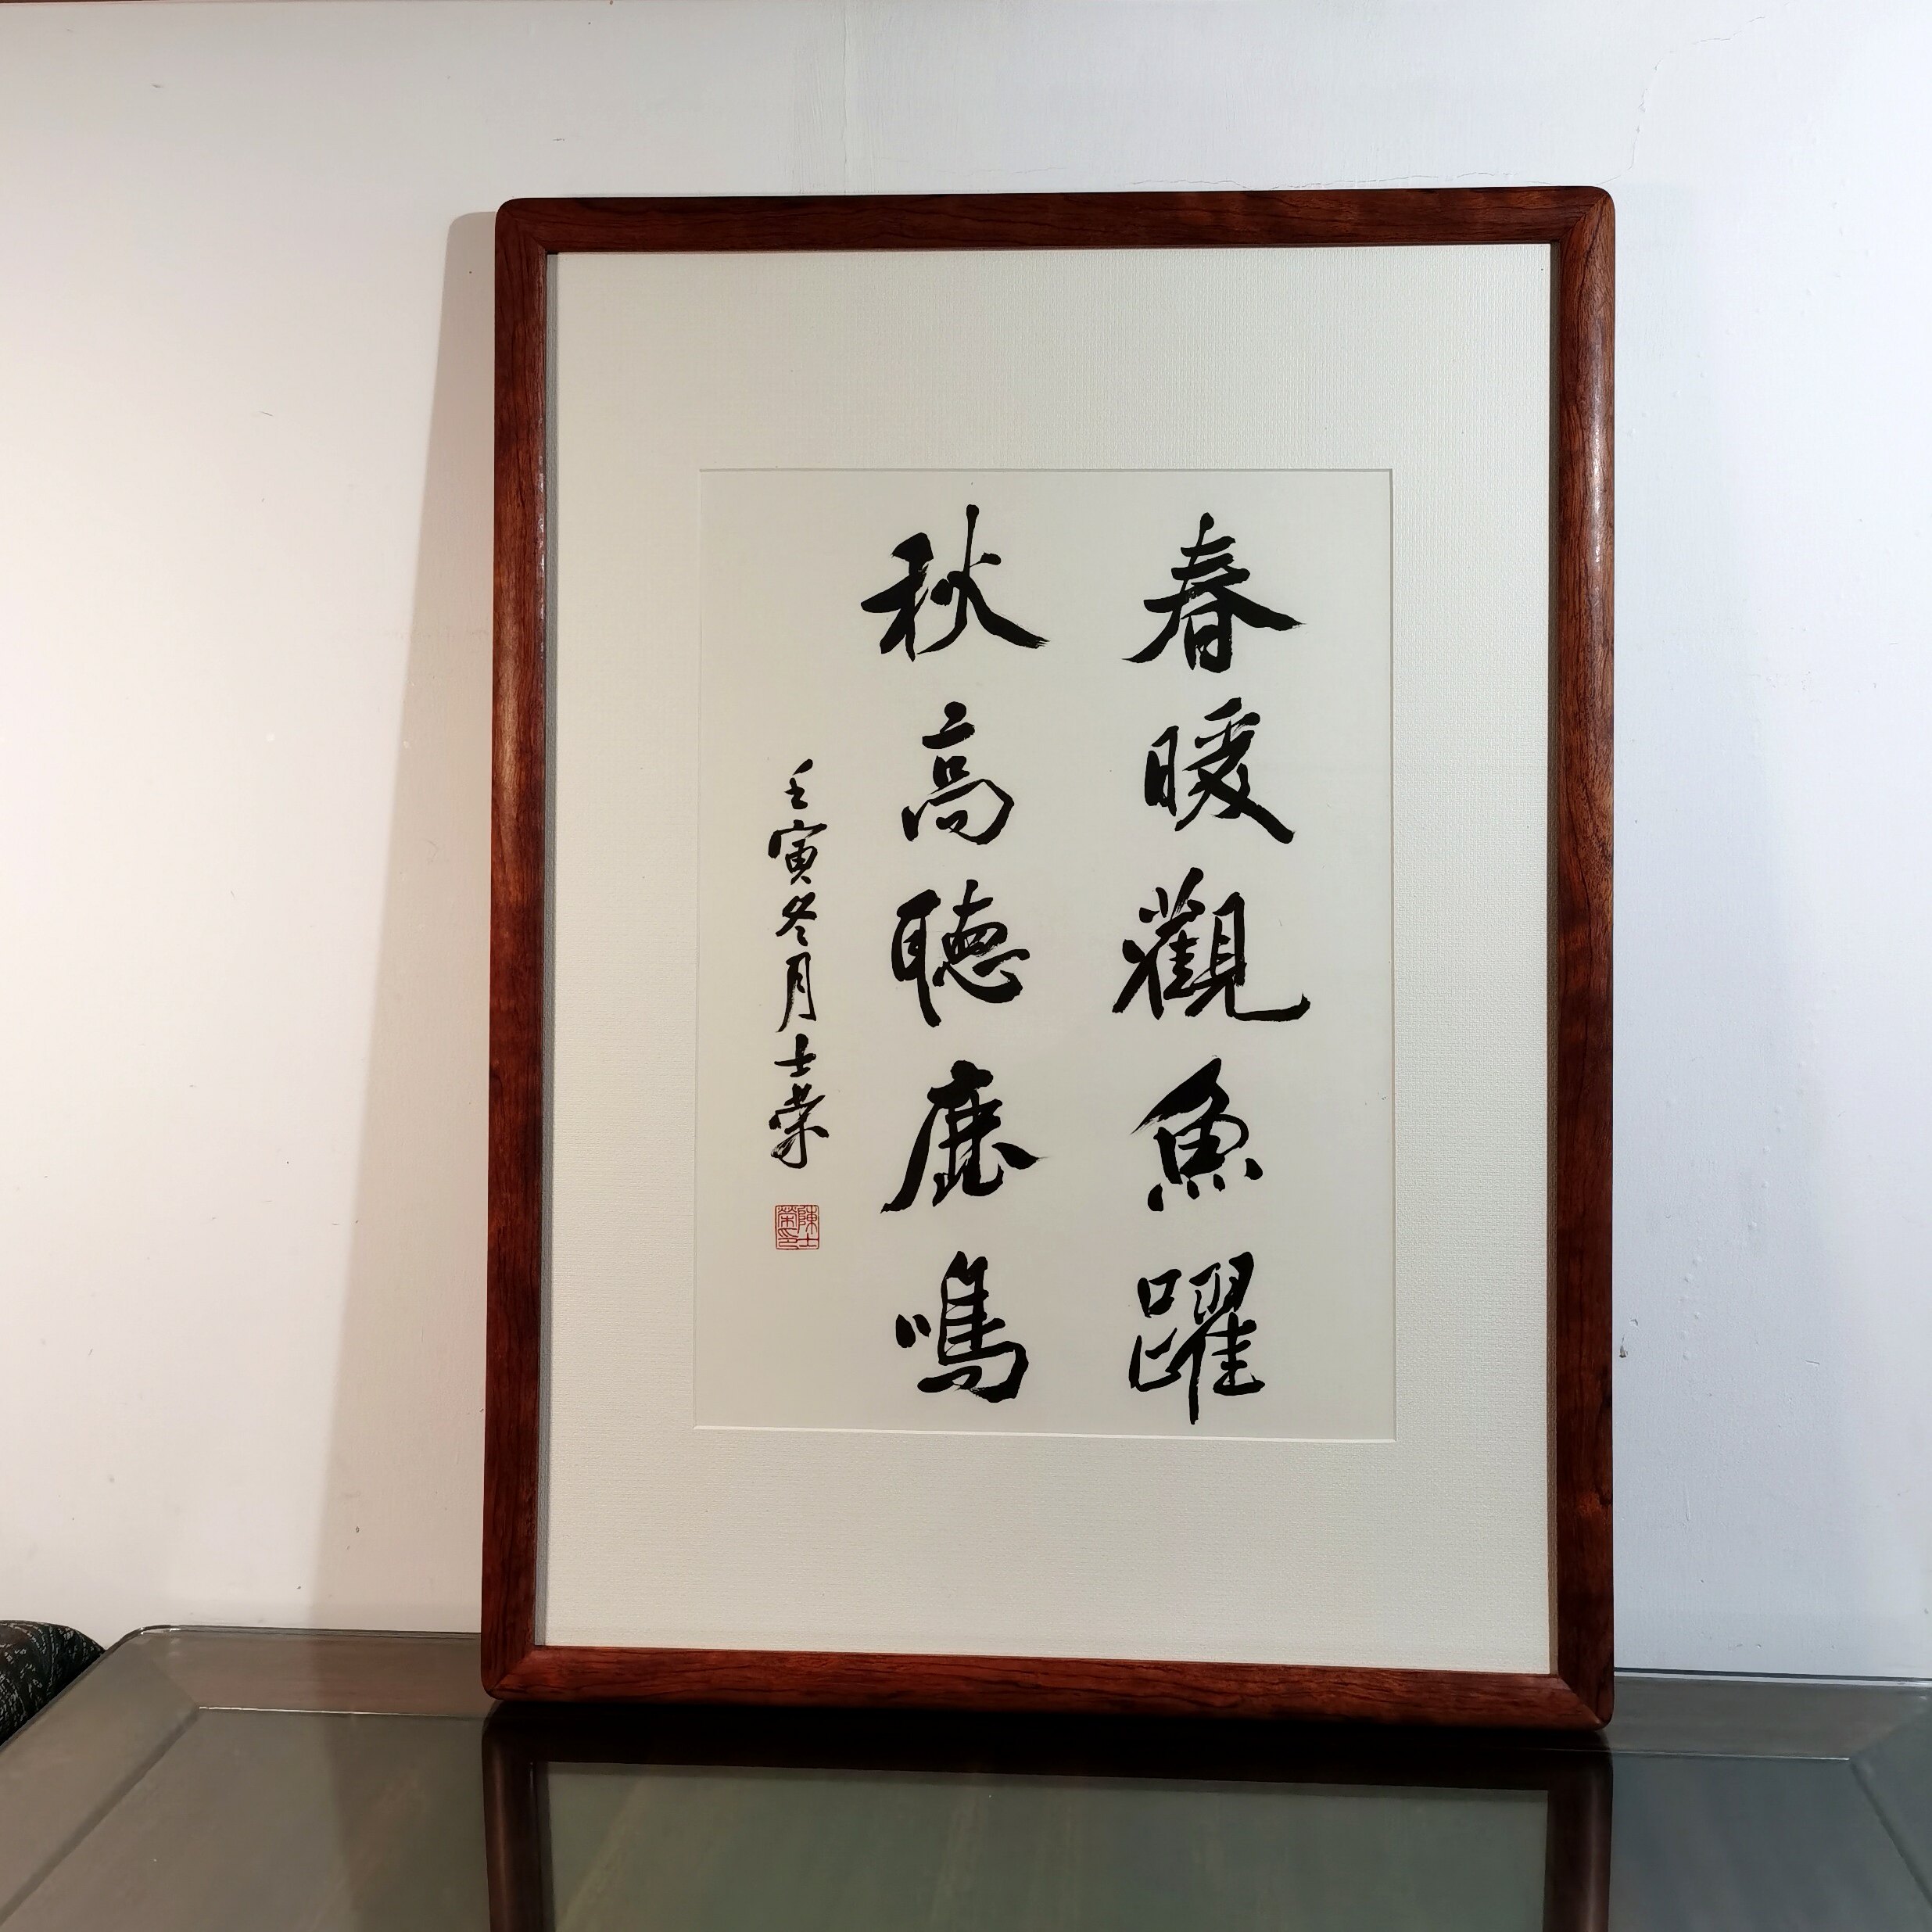 春暖觀魚躍
秋高聽鹿鳴
壬寅冬月士榮
陳士榮印